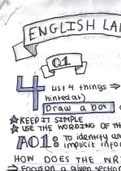 ENGLISH LA
Q1
4 List 4 things
hinted at)
Draw a box
★ KEEP IT SIMPLE
★ USE THE WORDING OF TH
AO1: to identify an
implicit infor
HOW DOES THE WR
Focus on a given section